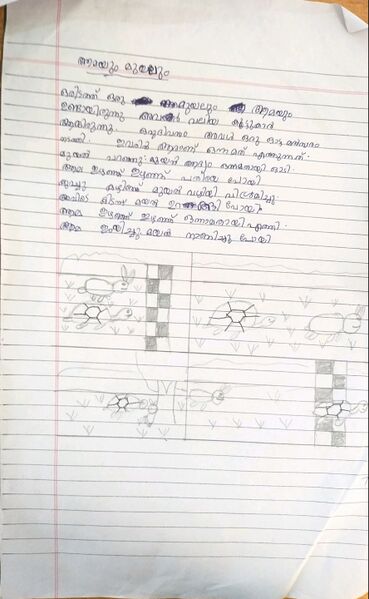 ആമയും മുയലും
ഒരിടത്ത് ഒരു മുയലും ആമയും
ഉണ്ടായിരുന്നു അവർ വലിയ കൂട്ടുകാർ
ആയിരുന്നു. ഒരുദിവസം അവർ ഒരു ഓട്ട മൽസരം
നടത്തി. ഇവരിൽ ആരാണ് ഒന്നാമത് എത്തുന്നത്.
മുയൽ പറഞ്ഞു: മുയൽ ആദ്യം ഒന്നാമതായി ഓടി.
ആമ ഇഴഞ്ഞ് ഇഴഞ്ഞ് പതിയെ പോയി
കുറച്ചു കഴിഞ്ഞ് മുയൽ വഴിയിൽ വിശ്രമിച്ചു.
അവിടെ കിടന്ന് മുയൽ ഉറങ്ങി പോയി.
ആമ ഇഴഞ്ഞ് ഇഴഞ്ഞ് ഒന്നാമതായി എത്തി.
ആമ ജയിച്ചു മുയൽ നാണിച്ചു പോയി